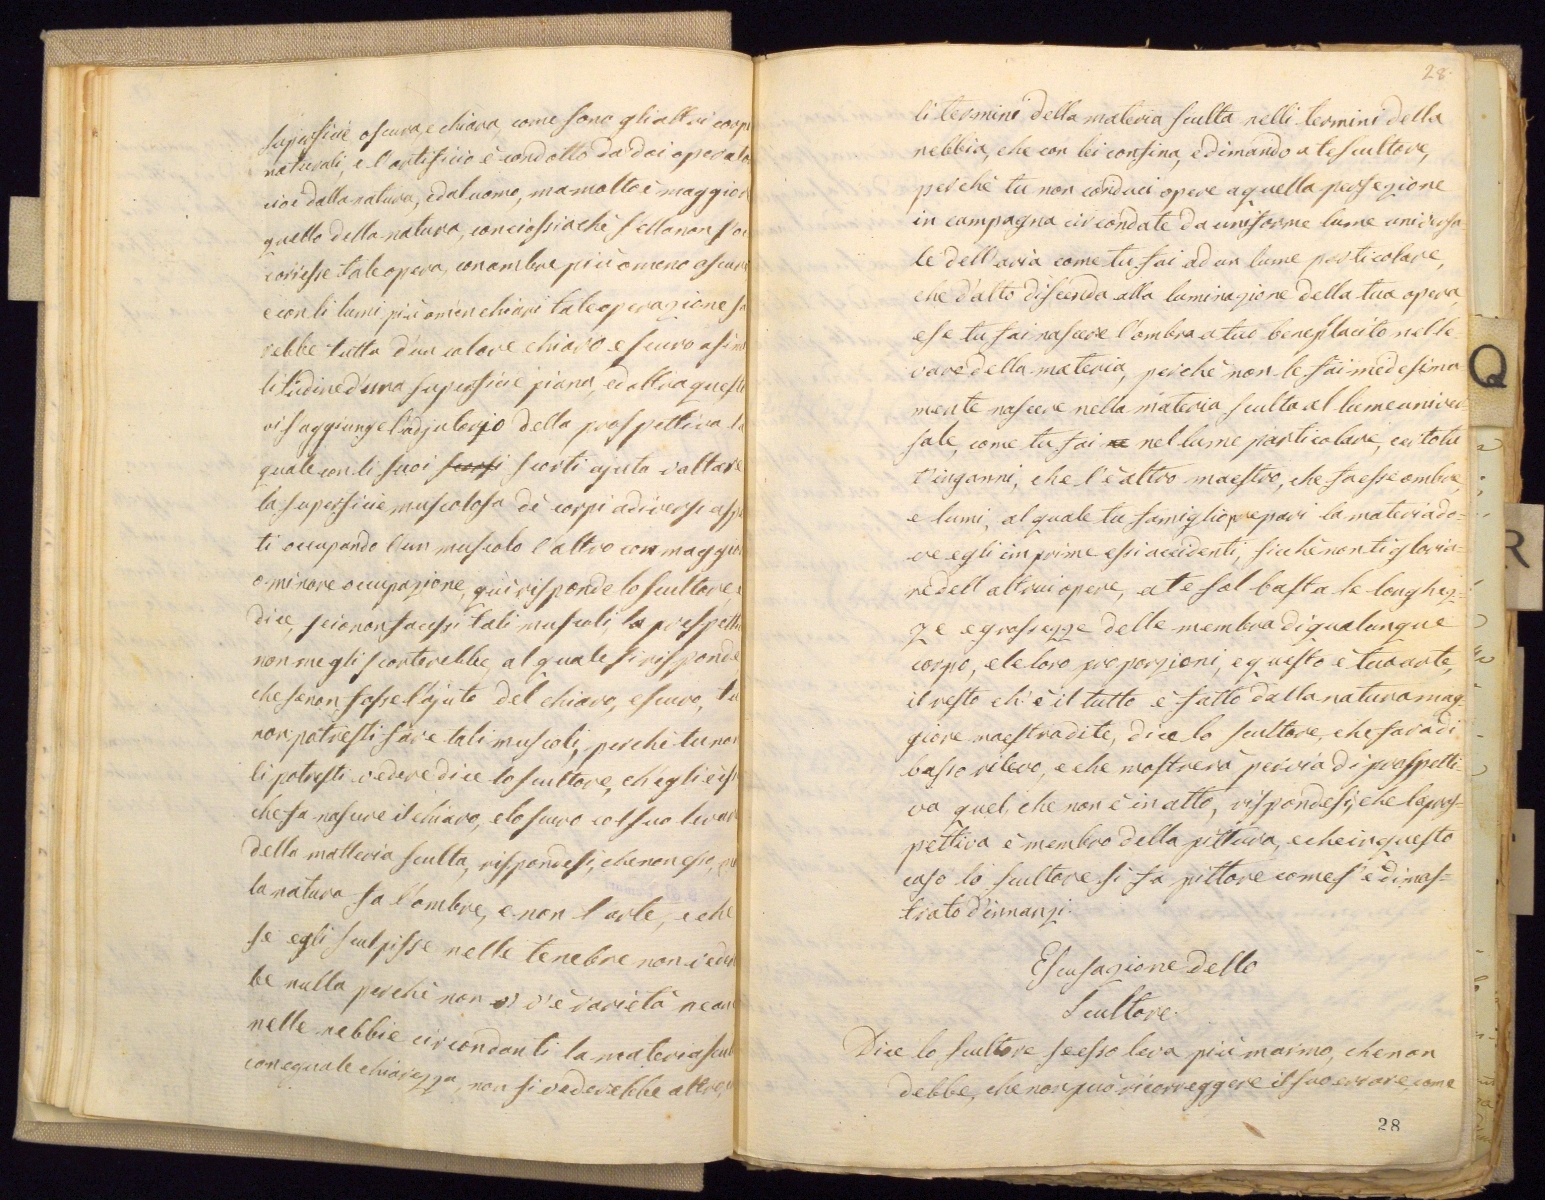 superficie oscura, e chiara, come sono gli altri corpi
naturali, e l'artificio è condotto da doi operato
cioè dalla natura, e dal uomo, ma molto è maggior
quello della natura, conciossiachè s'ella non soc
coresse tale opera, con ombre più o meno oscure
e con li lumi più o men chiari tale operazione sa
rebbe tutta d'un colore chiaro e scuro a simi
litudine d'una superficie piana, ed oltra questo
vi s'aggiunge l'adjutorio della prospettiva la
quale con li suoi scorsi scorti ajuta voltare
la superficie muscolosa de' corpi a diversi aspe
ti occupando l'un muscolo l'altro con maggior
o minore occupazione, quì risponde lo scultore, e
dice, se io non facessi tali muscoli, la prospetti
non me gli scorterebbe, al quale si risponde
che se non fosse l'ajuto del chiaro, e scuro, tu
non potresti fare tali muscoli, perchè tu non
li potresti vedere dice lo scultore, ch'egli è is
che fa nascere il chiaro, e lo scuro col suo levar
della matteria sculta, rispondesi, che non esso, ma
la natura fa l'ombre, e non l'arte, e che
se egli sculpisse nelle tenebre non vedre
be nulla perchè non vi v'è varietà ne an
nelle nebbie circondanti la materia scul
con eguale chiarezza, non si vederebbe altro, c
28.
li termini della materia sculta nelli termini della
nebbia, che con lei confina, e dimando a te scultore,
perchè tu non conduci opere a quella perfezione
in campagna circondate da uniforme lume universa-
le dell'aria come tu fai ad un lume particolare,
che d'alto discenda alla luminazione della tua opera,
e se tu fai nascere l'ombra a tuo beneplacito nelle-
vare della materia, perchè non le fai medesima-
mente nascere nella materia sculta al lume univer-
sale, come tu fai ne nel lume particolare, certo tu
t'inganni, che l'è altro maestro, che fa esse ombre,
e lumi, al quale tu famiglio prepari la materia do-
ve egli imprime essi accidenti, sicchè non ti gloria-
re dell'altrui opere, a te sol basta le longhez-
ze e grossezze delle membra di qualunque
corpo, e le loro proporzioni, e questo è tua arte,
il resto ch'è il tutto è fatto dalla natura mag-
giore maestra di te, dice lo scultore, che farà di
basso rilevo, e che mostrerà per via di prospetti-
va quel, che non è in atto, rispondesi, che la pros-
pettiva è membro della pittura, e che in questo
caso lo scultore si fa pittore come s'è dimos-
trato d'innanzi.
Escusazione dello
Scultore.
Dice lo scultore se esso leva più marmo, che non
debbe, che non può ricorreggere il suo errore, come
28
Q
R